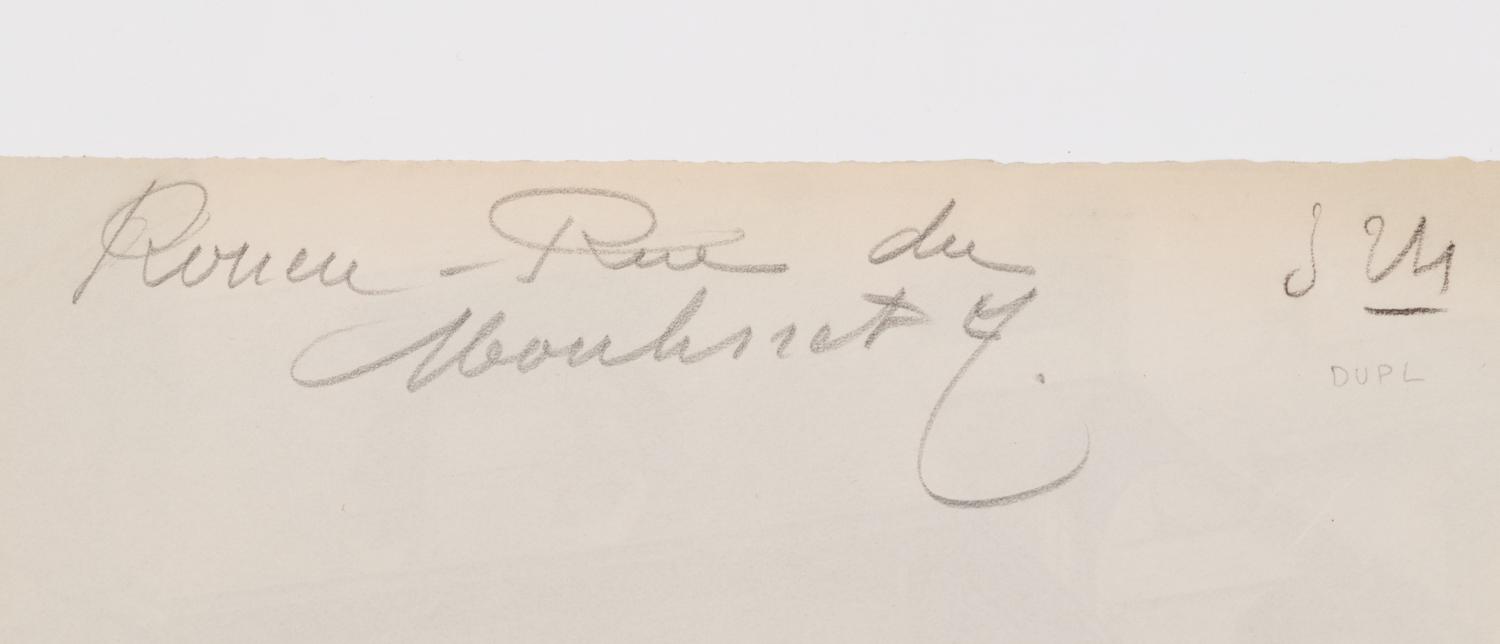 Rouen - Rue du
Moulinet
DUPL